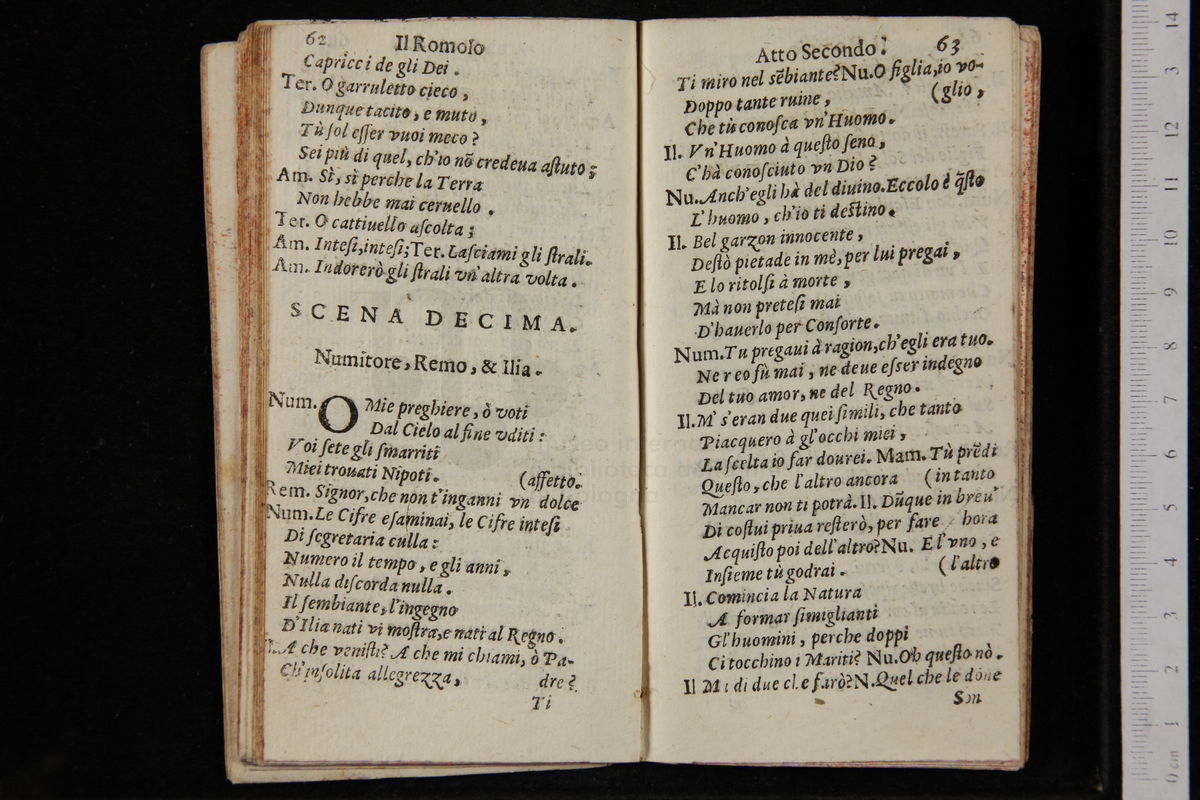 62 Il Romolo
Capricci de gli Dei.
Ter. O garruletto cieco,
Dunque tacito, e muto,
Tù ſol eſſer vuoi meco?
Sei più di quel, ch'io nõ credeua aſtuto;
Am. Sì, sì perche la Terra
Non hebbe mai ceruello.
Ter. O cattiuello aſcolta;
Am. Inteſi, inteſi; Ter. Laſciami gli ſtrali.
Am. Indorerò gli ſtrali vn'altra volta.
SCENA DECIMA.
Numitore, Remo, & Ilia.
Num. O Mie preghiere, ò voti
Dal Cielo al fine vditi:
Voi ſete gli ſmarriti
Miei trouati Nipoti. (affetto.
Rem. Signor, che non t'inganni vn dolce
Num. Le Cifre eſaminai, le Cifre inteſi
Di ſegretaria culla:
Numero il tempo, e gli anni,
Nulla diſcorda nulla.
Il ſembiante, l'ingegno
D'Ilia nati vi moſtra, e nati al Regno.
A che veniſti? A che mi chiami, ò Pa-
Ch'inſolita allegrezza, dre?
Ti
Atto Secondo. 63
Ti miro nel sẽbiante? Nu. O figlia, io vo-
Doppo tante ruine, (glio,
Che tù conoſca vn'Huomo.
Il. Vn'Huomo à queſto ſeno,
C'hà conoſciuto vn Dio?
Nu. Anch'egli hà del diuino. Eccolo è q̃ſto
L'huomo, ch'io ti deſtino.
Il. Bel garzon innocente,
Deſtò pietade in mè, per lui pregai,
E lo ritolſi à morte,
Mà non preteſi mai
D'hauerlo per Conſorte.
Num. Tu pregaui à ragion, ch'egli era tuo.
Ne reo fù mai, ne deue eſſer indegno
Del tuo amor, ne del Regno.
Il. M' s'eran due quei ſimili, che tanto
Piacquero à gl'occhi miei,
La ſcelta io far dourei. Mam. Tù prẽdi
Queſto, che l'altro ancora (in tanto
Mancar non ti potrà. Il. Dũque in breu'
Di coſtui priua reſterò, per fare hora
Acquiſto poi dell'altro? Nu. E l'vno, e
Inſieme tù godrai. (l'altro
Il. Comincia la Natura
A formar ſimiglianti
Gl'huomini, perche doppi
Ci tocchino i Mariti? Nu. Oh queſto nò.
Il Mà di due che farò? N. Quel che le dõne
Son